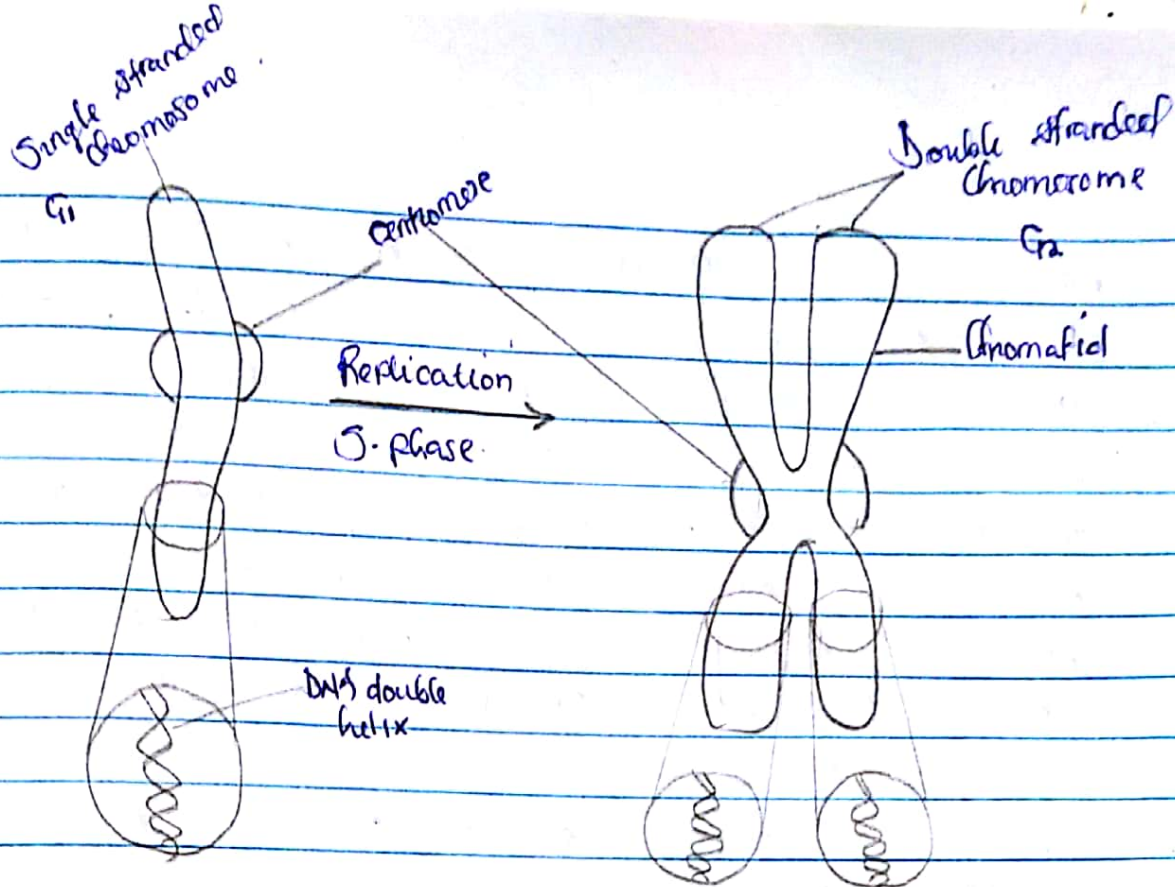 Single stranded
Chromosome
G1
Centromere
Replication
S-phase
DNA double
helix
Double stranded
Chromosome
G2
Chromatid